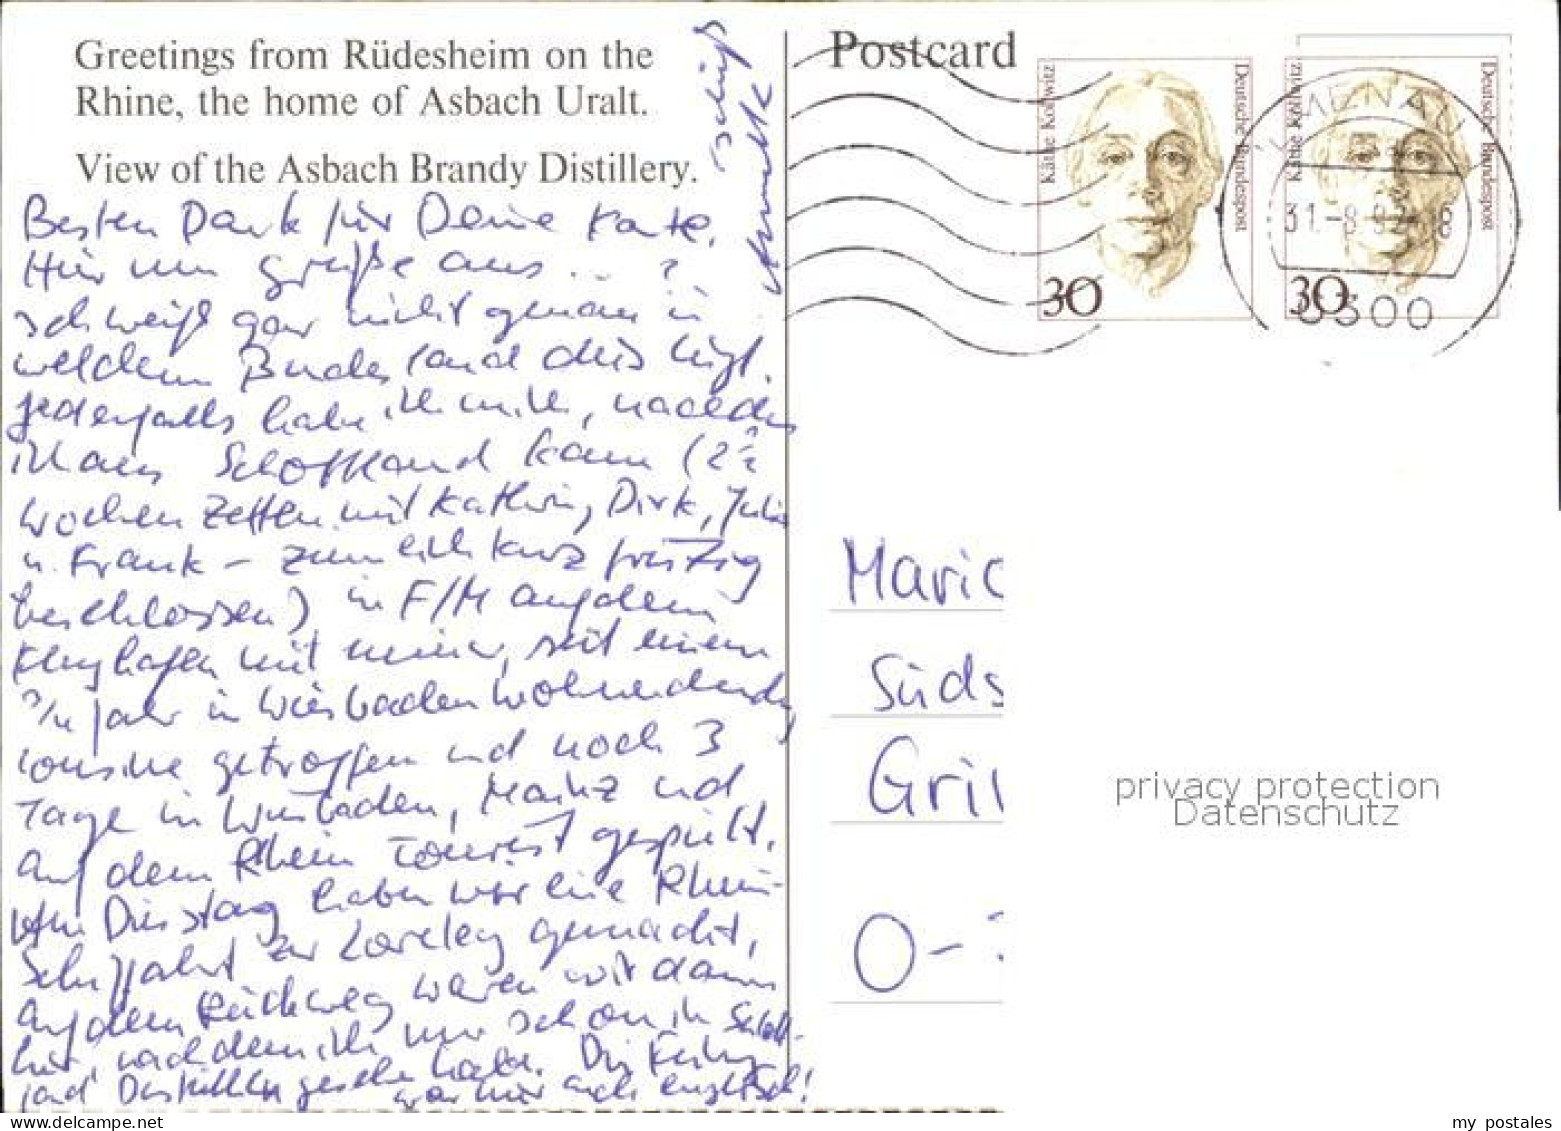 Greetings from Rüdesheim on the
Rhine, the home of Asbach Uralt.
View of the Asbach Brandy Distillery.
Besten Dank für Deine Karte.
Hier nun Grüße aus ... ?
Ich weiß gar nicht genau in
welchem Bundesland dies liegt.
Jedenfalls habe ich mich, nachdem
ich aus Schottland kam (2½
Wochen Zelten mit Kathrin, Dirk, Julia
u. Frank – ziemlich kurzfristig
beschlossen) in F/M auf dem
Flughafen mit meiner, seit einem
3/4 Jahr in Wiesbaden wohnenden
Cousine getroffen und noch 3
Tage in Wiesbaden, Mainz und
auf dem Rhein Tourist gespielt.
Am Dienstag haben wir eine Rhein-
schiffahrt zur Loreley gemacht,
auf dem Rückweg waren wir dann
hier, nachdem ich nur schon in Schott-
land Destillen gesehen habe. Die Führung
war hier auch englisch!
Tschüß
Postcard
Käthe Kollwitz
Deutsche Bundespost
30
Käthe Kollwitz
Deutsche Bundespost
30
ILMENAU
31.-8.92
6300
Maric
Süds
Gri
O-
privacy protection
Datenschutz
www.delcampe.net
my_postales